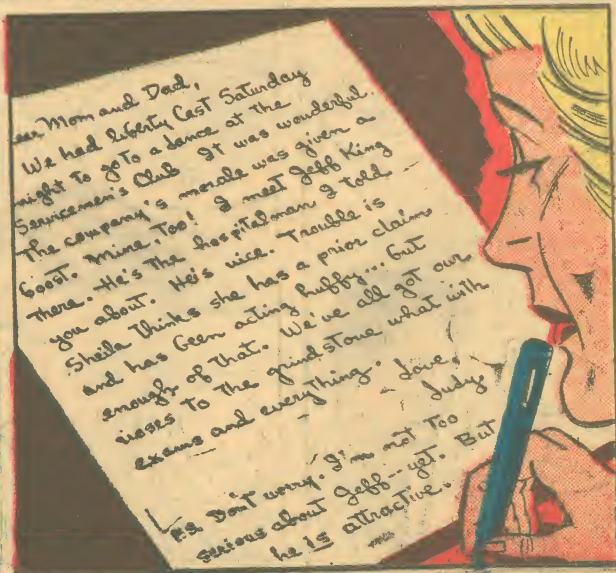 ear Mom and Dad,
We had liberty last Saturday
night to go to a dance at the
Servicemen's Club It was wonderful.
The company's morale was given a
boost. Mine, Too! I meet Jeff King
There. He's The hospitalman I told
you about. He's nice. Trouble is
Sheila Thinks she has a prior claim
and has been acting huffy... but
enough of that. We've all got our
noses To The grindstone what with
exams and everything.
- Love,
Judy
P.S. Don't worry. I'm not Too
serious about Jeff -- yet. But
he is attractive.